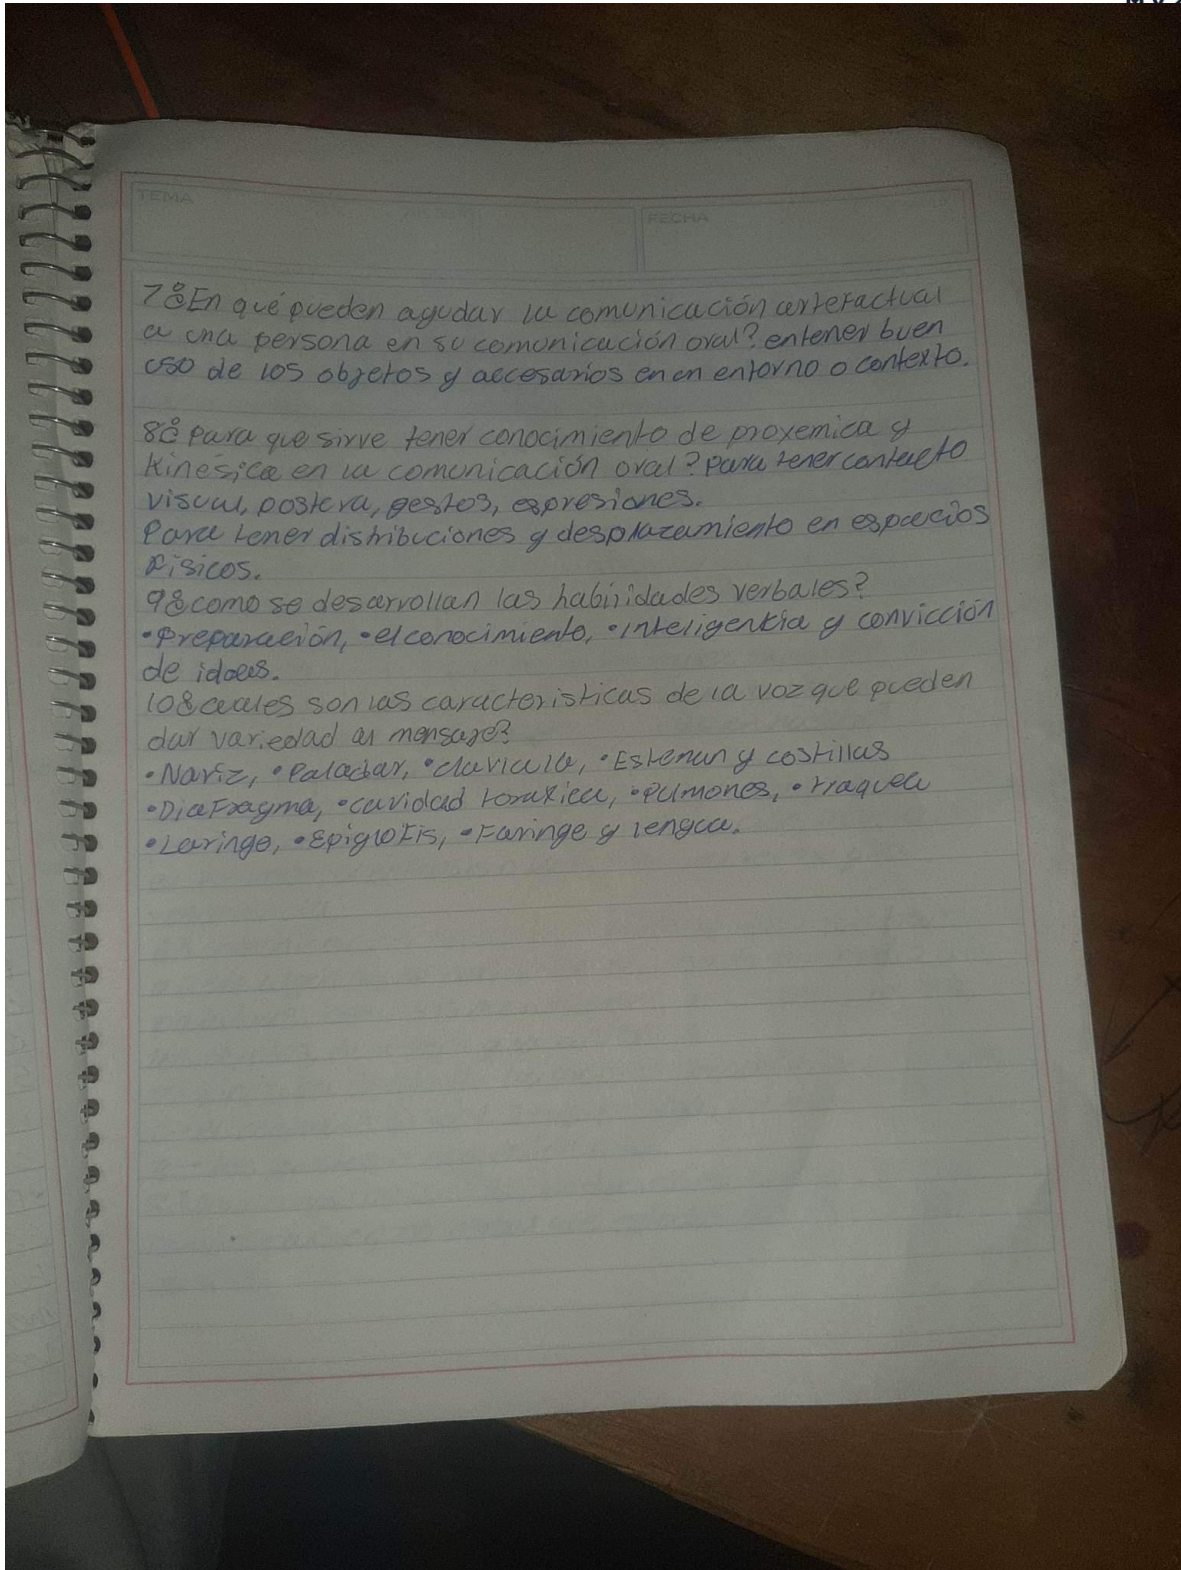 TEMA
FECHA
7¿En qué pueden ayudar la comunicación artefactual
a una persona en su comunicación oral? entener buen
uso de los objetos y accesarios en un entorno o contexto.
8¿Para que sirve tener conocimiento de proxemica y
Kinésica en la comunicación oral? para tener contacto
visual, postura, gestos, espresiones.
Para tener distribuciones y desplazamiento en espacios
Fisicos.
9¿como se desarrollan las habilidades verbales?
•Preparación, •el conocimiento, •Inteligencia y convicción
de ideas.
10¿cuales son las caracteristicas de la voz que pueden
dar variedad al mensaje?
•Nariz, •Paladar, •clavicula, •Esternun y costillas
•DiaFragma, •cavidad toraxica, •pulmones, •traquea
•Laringe, •Epiglotis, •Faringe y lengua.